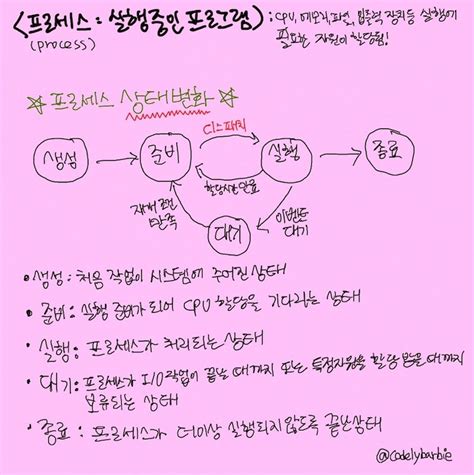 <프로세스 : 실행중인 프로그램> : CPU, 메모리, 파일, 입출력 장치등 실행에
(process) 필요한 자원이 할당됨!
☆ 프로세스 상태변화 ☆
디스패치
생성 준비 실행 종료
할당시간만료
재개 조건 이벤트
만족 대기
대기
• 생성 : 처음 작업이 시스템에 주어진 상태
• 준비 : 실행 준비가 되어 CPU 할당을 기다리는 상태
• 실행 : 프로세스가 처리되는 상태
• 대기 : 프로세스가 I/O작업이 끝날 때까지 또는 특정자원을 할당 받을 때까지
보류되는 상태
• 종료 : 프로세스가 더이상 실행되지 않도록 끝난상태
@codelybarbie